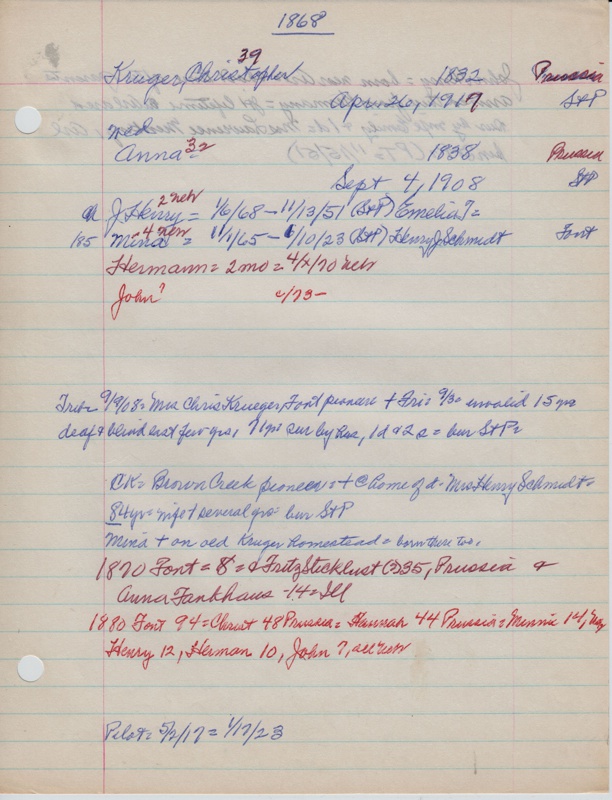 1868
39
Kruger, Christopher 1832 Prussia
Apr. 26, 1917 StP
Anna = 32 1838 Prussia
Sept 4, 1908 StP
2 neb
J Henry = 1/6/68 - 11/13/51 (StP) Emelia ? =
4 neb
185 Mina = 11/1/65 - 1/10/23 (StP) Henry J Schmidt Font
Hermann = 2 mo = 4/x/70 neb
John ? c/73 -
Trib = 9/9/08 = Mrs Chris Krueger, Font pioneer + Fri = 9/3 = invalid 15 yrs
deaf & blind last few yrs, 71 yrs sur by hus, 1 d & 2 s = bur StP =
CK = Brown Creek pioneer = + @ home of d = Mrs Henry Schmidt =
84 yrs = wife + several yrs bur StP
Mina + on old Kruger Homestead = born there too.
1870 Font = 8 = & Fritz (?) 35, Prussia &
Anna Fankhaus - 14 = Ill
1880 Font 94 = Christ 48 Prussia = Hannah 44 Prussia = Minnie 14,
Henry 12, Herman 10, John ?, all neb
Pilot = 5/2/17 = 1/17/23